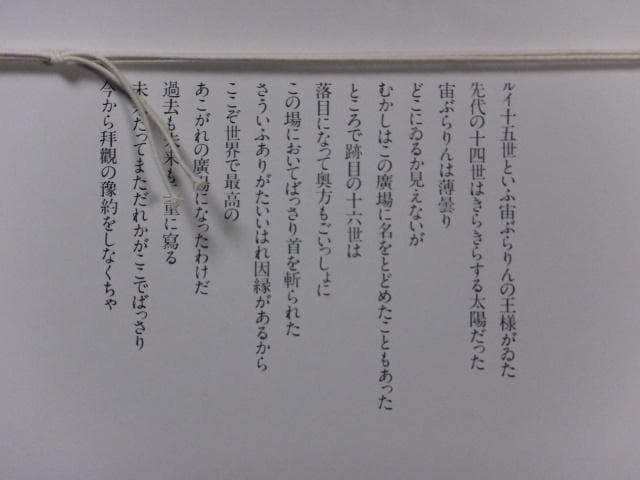 ルイ十五世といふ宙ぶらりんの王様がゐた
先代の十四世はきらきらする太陽だった
宙ぶらりんは薄曇り
どこにゐるか見えないが
むかしはこの廣場に名をとどめたこともあった
ところで跡目の十六世は
落目になって奥方もごいっしょに
この場においてばっさり首を斬られた
さういふありがたいいはれ因縁があるから
ここぞ世界で最高の
あこがれの廣場になったわけだ
過去も未来も二重に寫る
未来だってまただれかがここでばっさり
今から拝觀の豫約をしなくちゃ